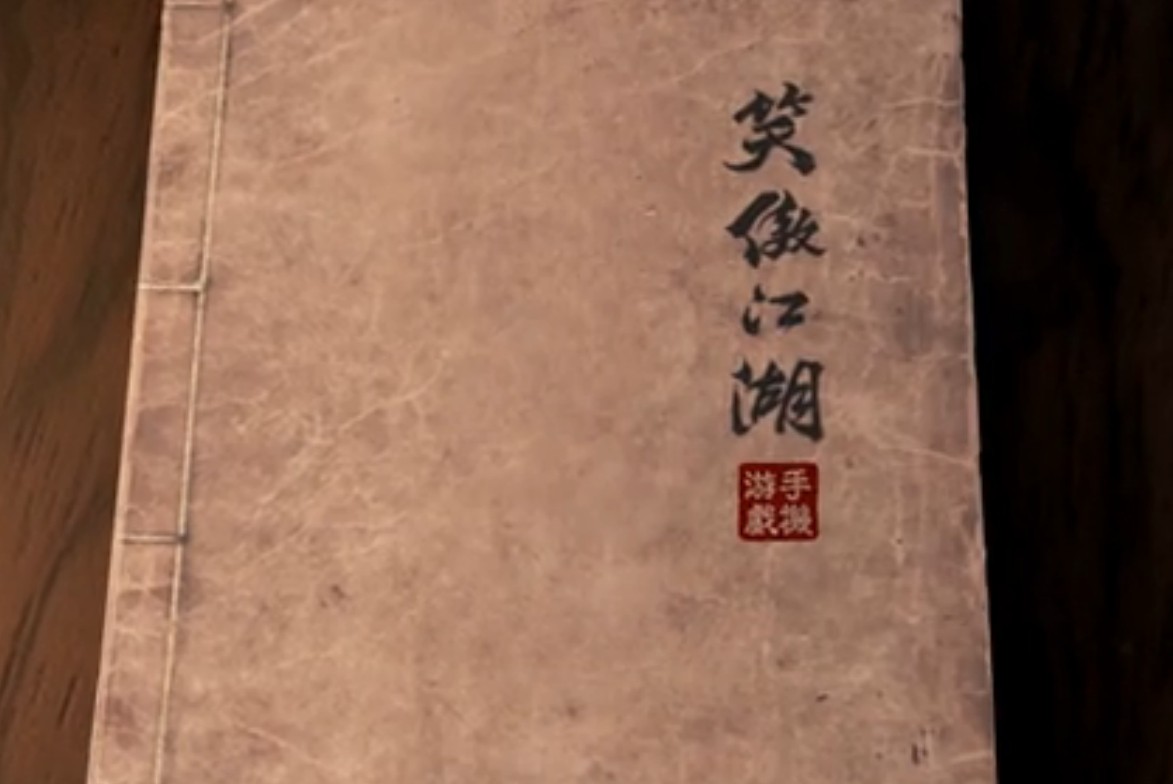 笑傲江湖
手機
游戲